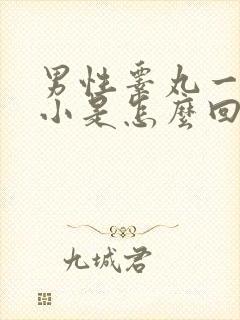 男性睾丸一
小是怎麼回
九城君